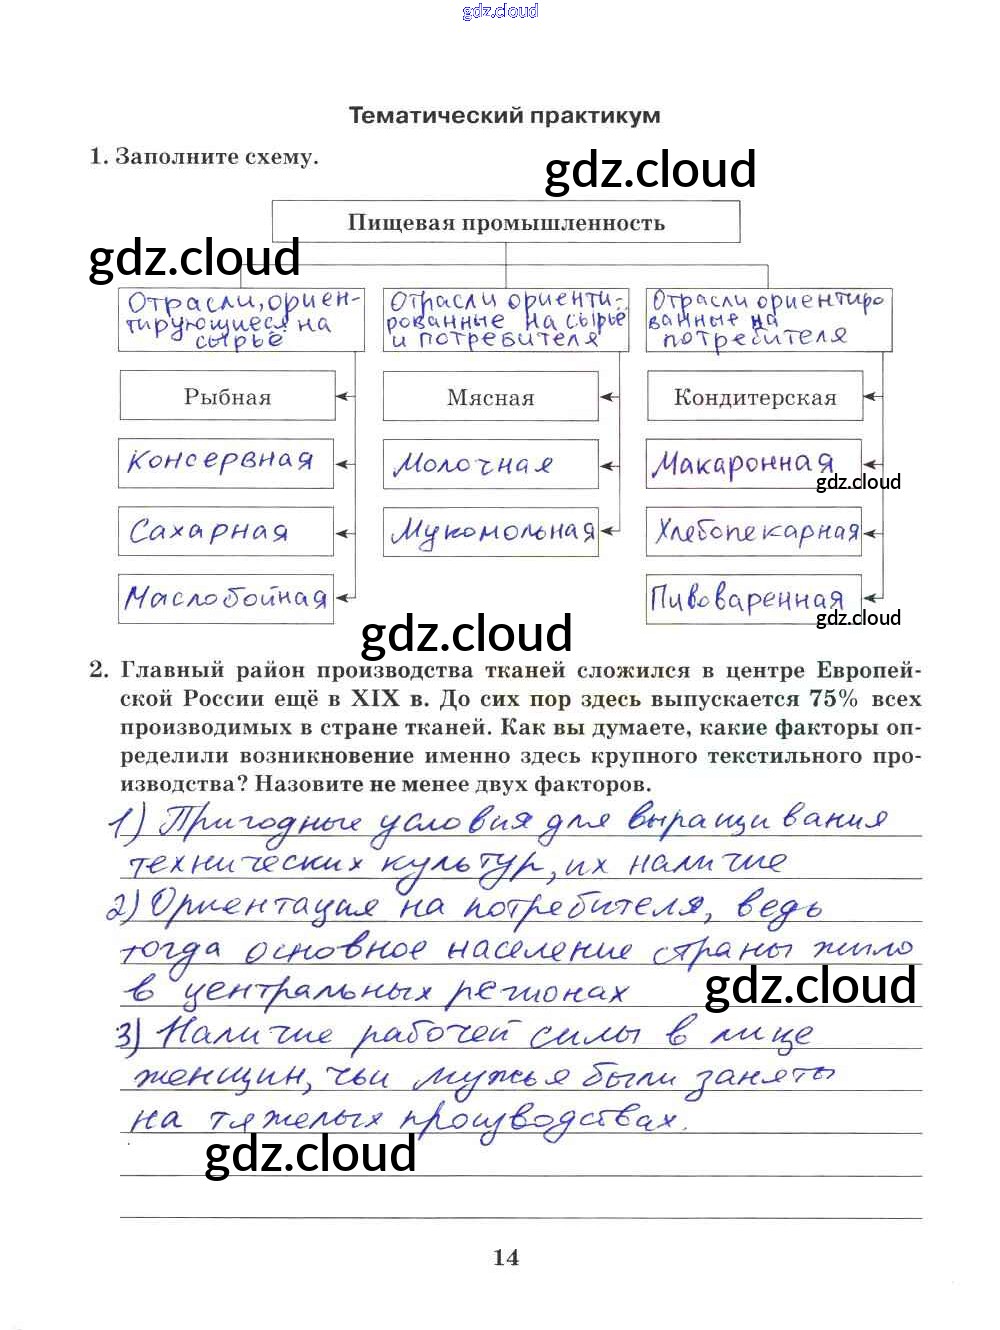 gdz.cloud
Тематический практикум
1. Заполните схему.
gdz.cloud
Пищевая промышленность
gdz.cloud
Отрасли, ориен-
тирующиеся на
сырьё
Отрасли ориенти-
рованные на сырьё
и потребителя
Отрасли ориентиро
ванные на
потребителя
Рыбная
Мясная
Кондитерская
Консервная
Молочная
Макаронная
gdz.cloud
Сахарная
Мукомольная
Хлебопекарная
Маслобойная
Пивоваренная
gdz.cloud
gdz.cloud
2. Главный район производства тканей сложился в центре Европей-
ской России ещё в XIX в. До сих пор здесь выпускается 75% всех
производимых в стране тканей. Как вы думаете, какие факторы оп-
ределили возникновение именно здесь крупного текстильного про-
изводства? Назовите не менее двух факторов.
1) Пригодные условия для выращивания
технических культур, их наличие
2) Ориентация на потребителя, ведь
тогда основное население страны жило
в центральных регионах
gdz.cloud
3) Наличие рабочей силы в лице
женщин, чьи мужья были заняты
на тяжелых производствах.
gdz.cloud
14